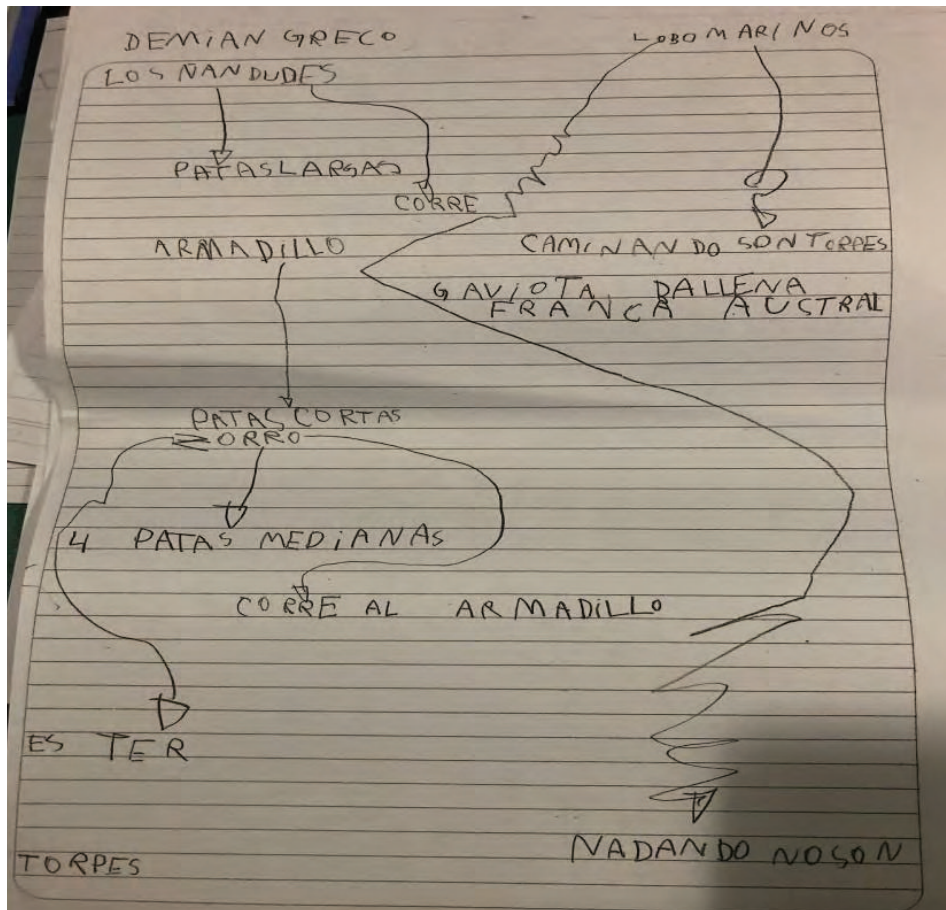 DEMIAN GRECO
LOBO MARINOS
LOS ÑANDUDES
PATAS LARGAS
CORRE
ARMADILLO
CAMINANDO SON TORPES
GAVIOTA, BALLENA
FRANCA AUSTRAL
PATAS CORTAS
ZORRO
4 PATAS MEDIANAS
CORRE AL ARMADILLO
ES TER
NADANDO NO SON
TORPES